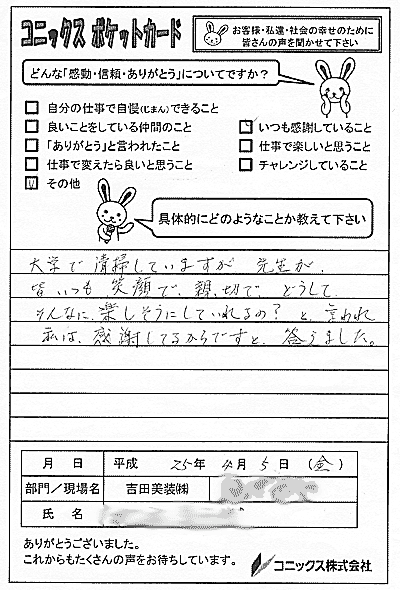 コニックス ポケットカード
お客様・私達・社会の幸せのために
皆さんの声を聞かせて下さい
どんな「感動・信頼・ありがとう」についてですか？
自分の仕事で自慢(じまん)できること
良いことをしている仲間のこと
いつも感謝していること
「ありがとう」と言われたこと
仕事で楽しいと思うこと
仕事で変えたら良いと思うこと
チャレンジしていること
その他
具体的にどのようなことか教えて下さい
大学で清掃していますが 先生が、
皆いつも笑顔で、親切で、どうして
そんなに、楽しそうにしていれるの？と、言われ
私は、感謝してるからですと、答うました。
月 日 平成 25年 4月 5日 (金)
部門／現場名 吉田美装㈱
氏 名
ありがとうございました。
これからもたくさんの声をお待ちしています。
コニックス株式会社